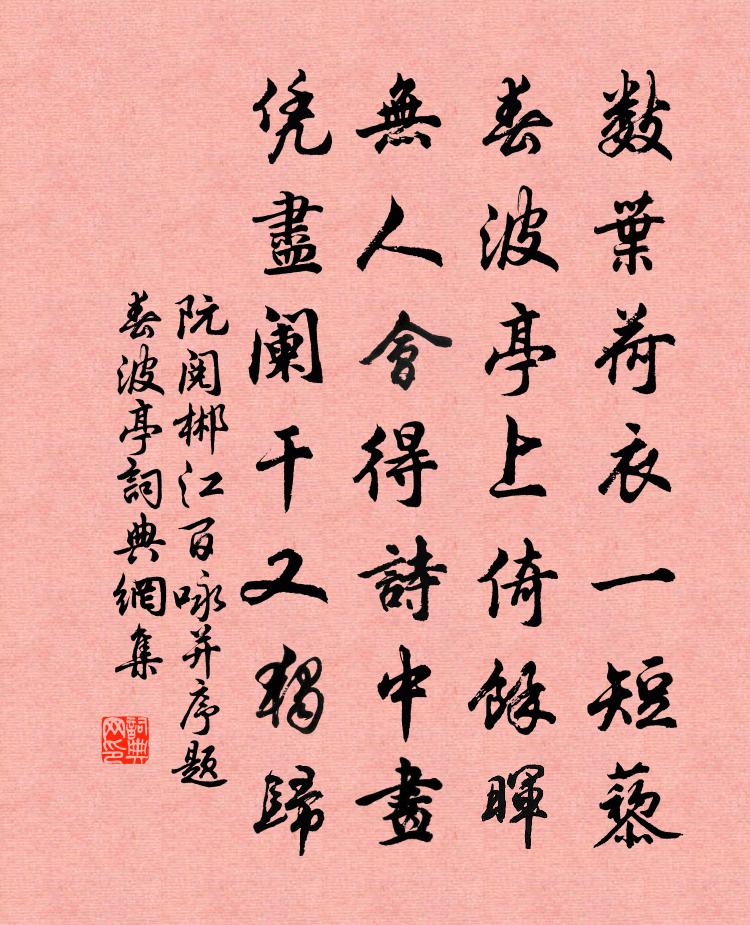 數葉荷衣一短藜
春波亭上倚餘暉
無人會得詩中畫
凭盡闌干又獨歸
阮閱郴江百咏并序題
春波亭詞典網集
詞典網印